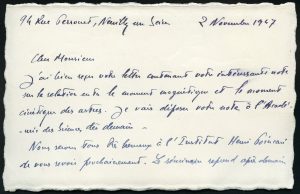 94 Rue Perronet, Neuilly sur Seine 2 Novembre 1947
Cher Monsieur
J'ai bien reçu votre lettre contenant votre intéressante note
sur la relation entre le moment magnétique et le moment
cinétique des astres. Je vais déposer votre note à l'Acadé-
mie des Sciences dès demain.
Nous serons très heureux à l'Institut Henri Poincaré
de vous revoir prochainement. Le séminaire reprend après demain